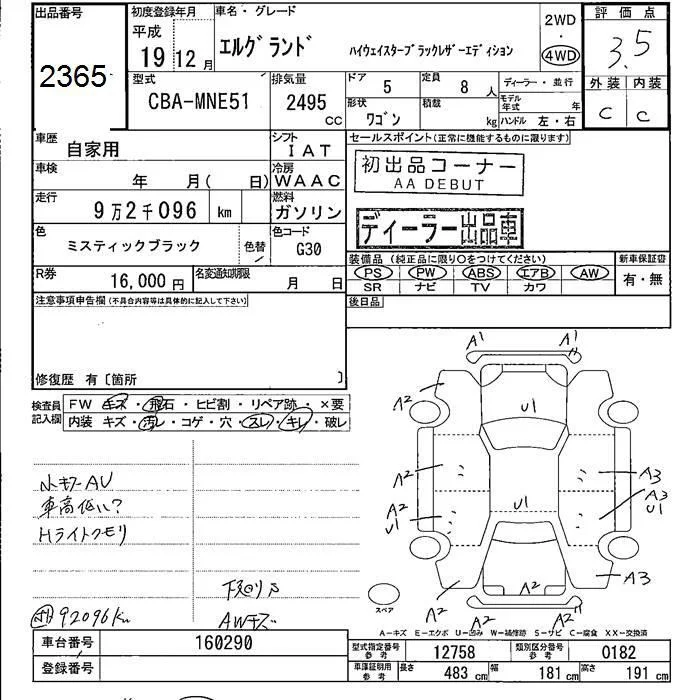 出品番号
2365
初度登録年月
平成
19 12 月
車名・グレード
エルグランド
ハイウェイスターブラックレザーエディション
2WD
・
4WD
評価点
3.5
外装 内装
C C
型式
CBA-MNE51
排気量
2495 CC
ドア 5
定員 8 人
形状 ワゴン
積載 kg
ディーラー・並行
モデル年式 年
ハンドル 左・右
車歴 自家用
シフト IAT
車検 年 月( 日)
冷房 WAAC
走行 9万2千096 km
燃料 ガソリン
色 ミスティックブラック
色替
色コード G30
R券 16,000 円
名変通知期限 月 日
セールスポイント(正常に機能するものに限ります)
初出品コーナー
AA DEBUT
ディーラー出品車
装備品 (純正品に限り○をつけてください)
PS PW ABS エアB AW
SR ナビ TV カワ
新車保証書
有・無
後日品
注意事項申告欄(不具合内容等は具体的に記入して下さい)
修復歴 有〔箇所 〕
検査員記入欄
FW キズ・飛石・ヒビ割・リペア跡・×要
内装 キズ・汚レ・コゲ・穴・スレ・キレ・破レ
A1 A1
A2 U1
A2 A3
A2 U1 U1 A3 U1
A2 A3
A2 A2 A2
スペア
車高低い?
Hライトクモリ
下回りサ
92096km
AWキズ
A−キズ E−エクボ U−凹み W−補修跡 S−サビ C−腐食 XX−交換済
車台番号 160290
登録番号
型式指定番号参考 12758
類別区分番号参考 0182
車庫証明用参考 長さ 483 cm 幅 181 cm 高さ 191 cm